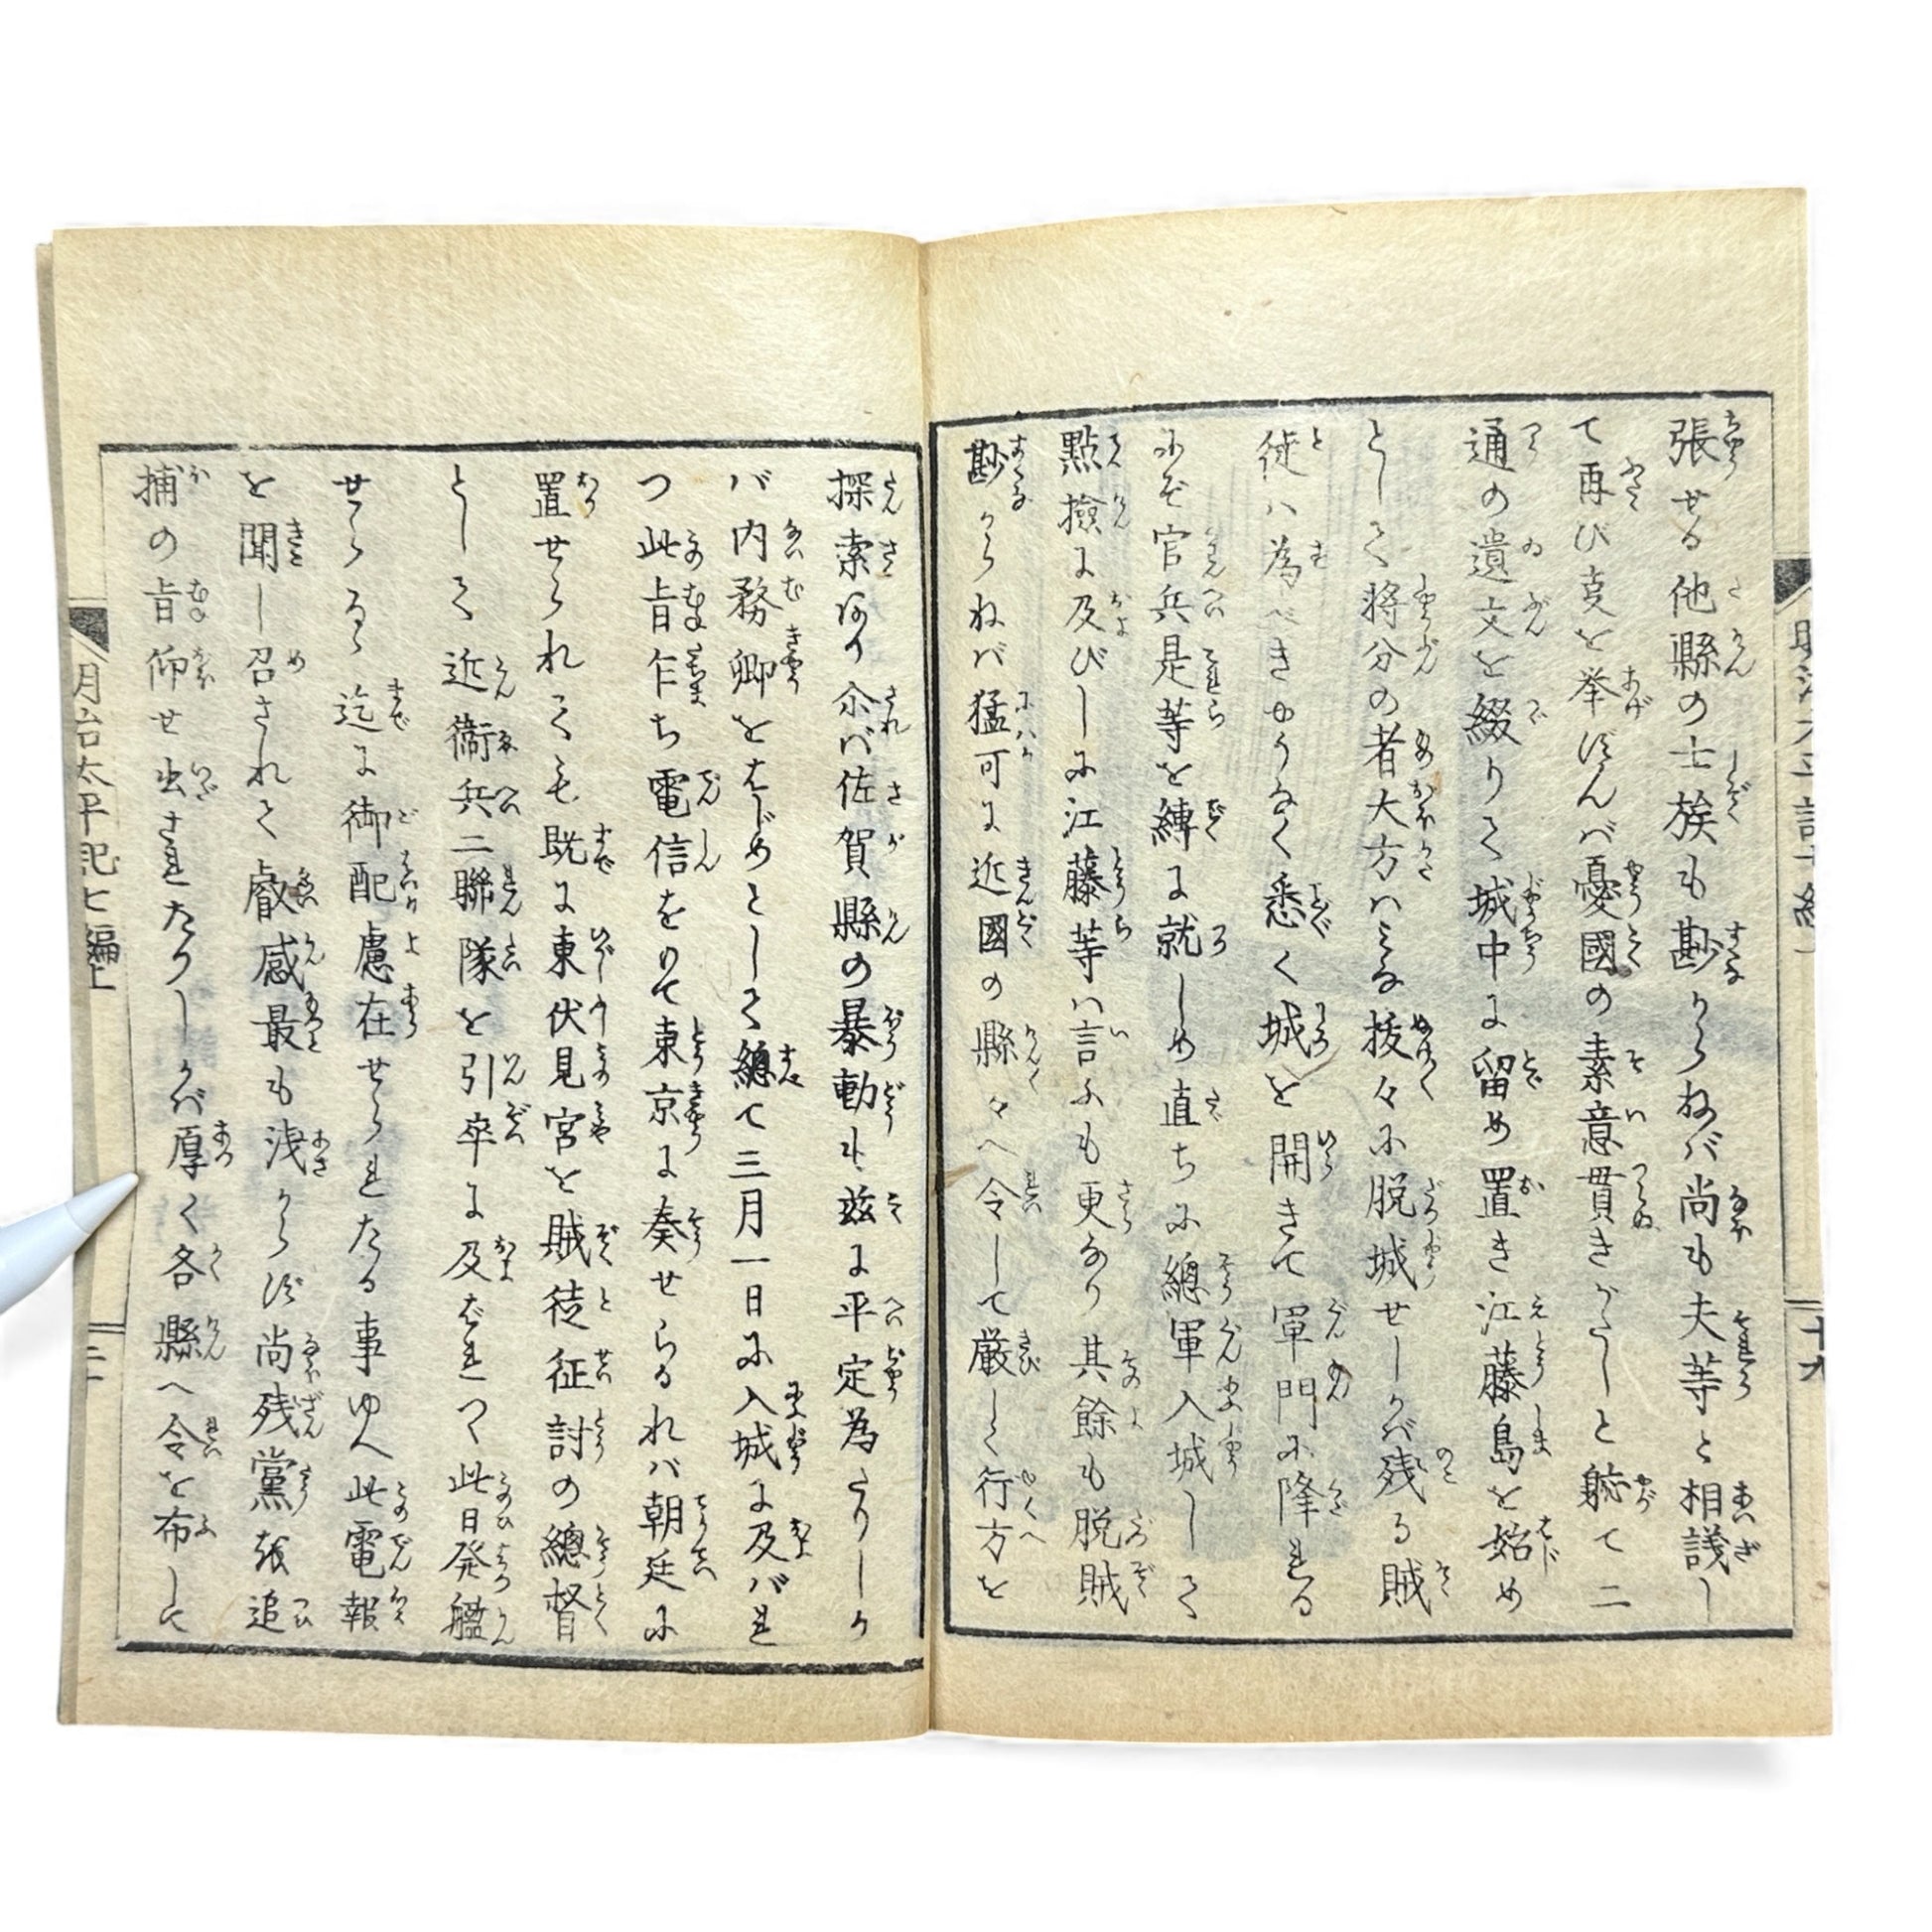 張せる他縣の士族も尠からねバ尚も夫等と相議し
て再び支を挙げんバ憂國の素意貫きがたしと躮て二
通の遺文を綴りて城中に留め置き江藤島を始め
として将分の者大方ハミな抜々に脱城せしかバ残る賊
徒ハ為べきやうなく悉く城を開きて軍門に降れる
にぞ官兵是等を縛に就しめ直ちに總軍入城して
點撿に及びしに江藤等ハ言ふも更なり其餘も脱賊
尠からねバ猛可に近國の縣々へ令して厳しく行方を
探索あり尒バ佐賀縣の暴動も玆に平定為たりしか
バ内務卿をはじめとして總て三月一日に入城に及バれ
つ此旨乍ち電信をもて東京に奏せらるれバ朝廷に
置せられても既に東伏見宮を賊徒征討の總督
として近衞兵二聯隊を引卒に及ばれつ此日発艦
せらるゝ迄に御配慮在せられたる事ゆへ此電報
を聞し召されて叡感最も浅からず尚残黨を追
捕の旨仰せ出されたりしかバ厚く各縣へ令を布して
明治太平記七編上
十九
二十